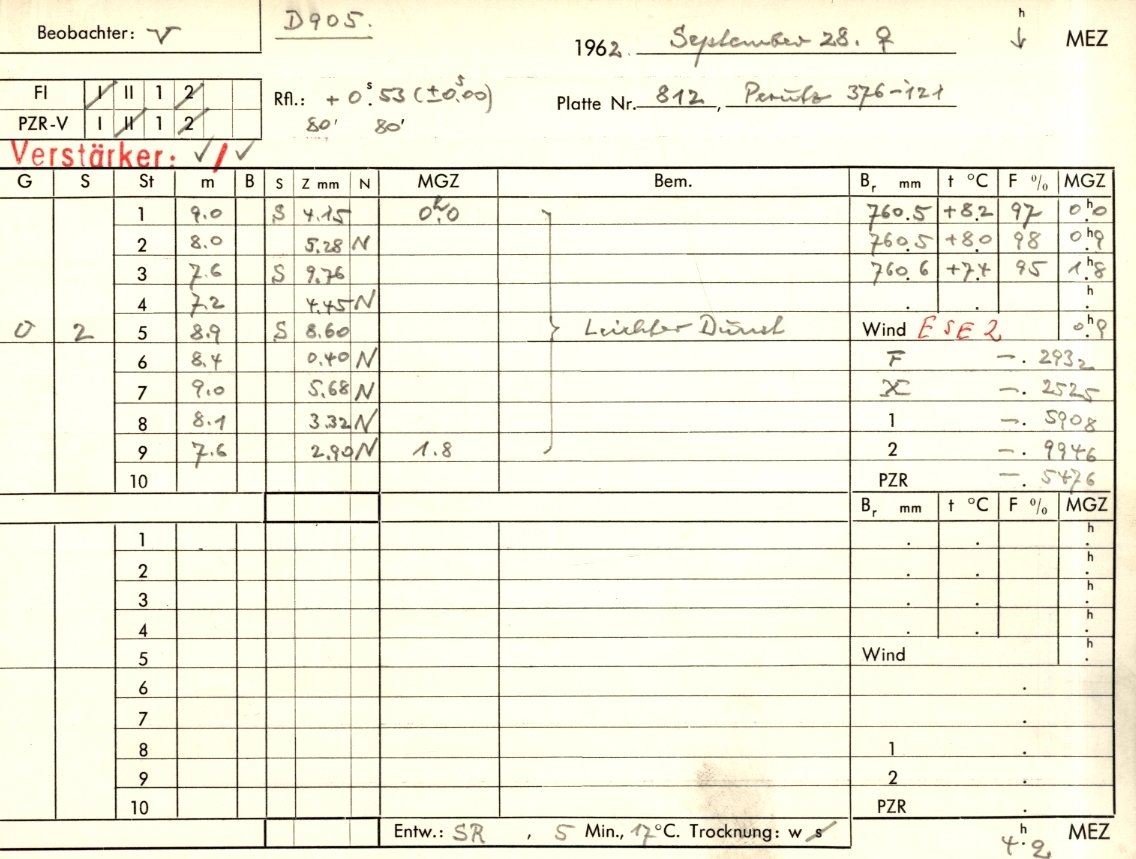 Beobachter: V
D905.
1962. September 28. ♀ h ↓ MEZ
FI I II 1 2
PZR-V I II 1 2
Rfl.: + 0ˢ.53 (±0ˢ.00)
80' 80'
Platte Nr. 812, Perutz 376-121
Verstärker: ✓/✓
G S St m B S Z mm N MGZ Bem. Bᵣ mm t °C F % MGZ
1 9.0 S 4.15 0ʰ.0 760.5 +8.2 97 0ʰ.0
2 8.0 5.28 N 760.5 +8.0 98 0ʰ.9
3 7.6 S 9.76 760.6 +7.4 95 1ʰ.8
4 7.2 4.45 N . . h .
0 2 5 8.9 S 8.60 Leichter Dunst Wind ESE 2 0ʰ.9
6 8.4 0.40 N F −. 2932
7 9.0 5.68 N −. 2525
8 8.1 3.32 N 1 −. 5908
9 7.6 2.90 N 1.8 2 −. 9946
10 PZR −. 5476
Bᵣ mm t °C F % MGZ
1 . . h .
2 . . h .
3 . . h .
4 . . h .
5 Wind h .
6 .
7 .
8 1 .
9 2 .
10 PZR .
Entw.: SR , 5 Min., 17°C. Trocknung: w s 4ʰ.2 MEZ